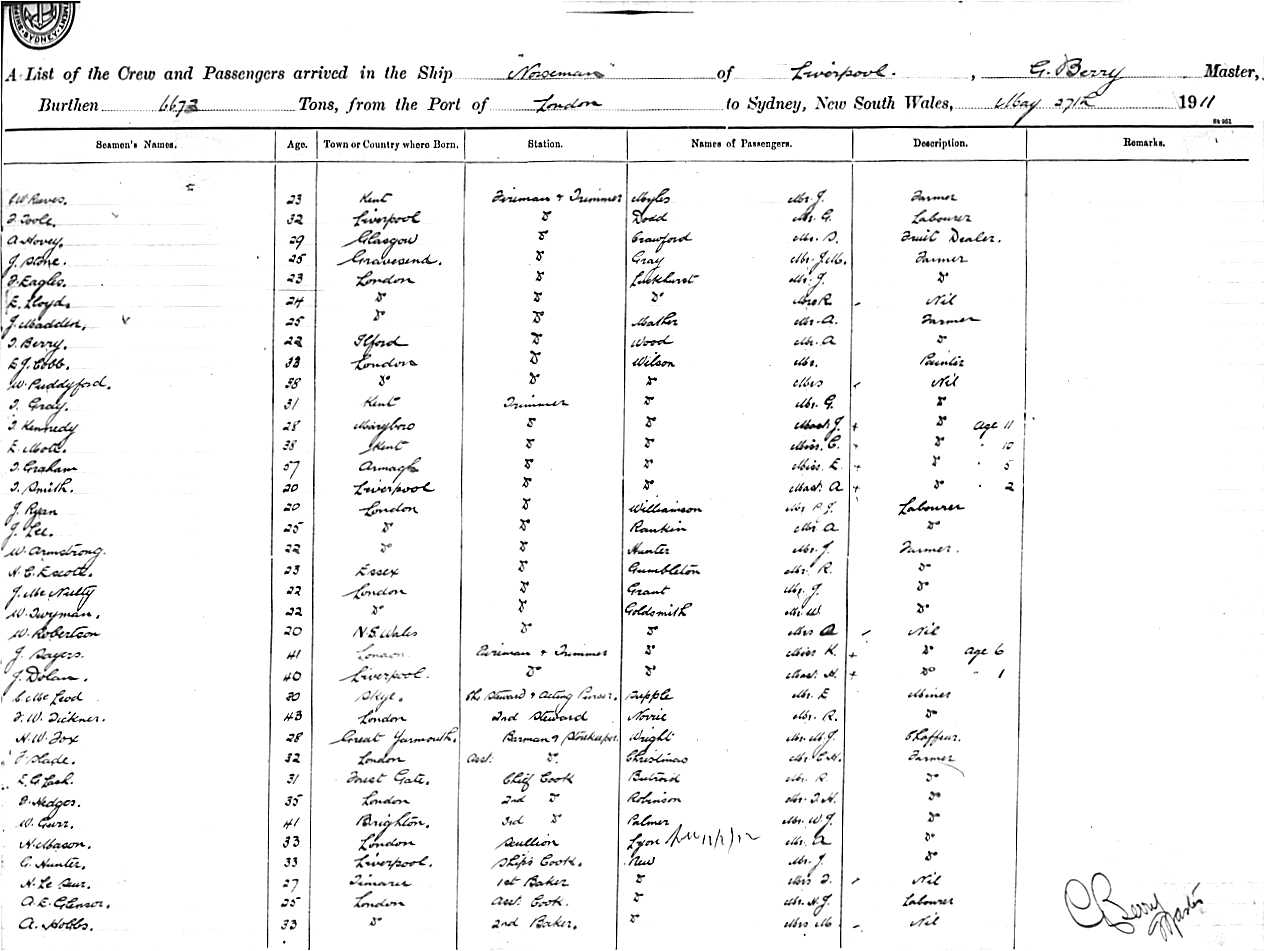 SYDNEY
A List of the Crew and Passengers arrived in the Ship "Norseman" of Liverpool. , G. Berry Master,
Burthen 6673 Tons, from the Port of London to Sydney, New South Wales, May 27th 1911
Seamen's Names. Age. Town or Country where Born. Station. Names of Passengers. Description. Remarks.
W. Reeves. 23 Kent Fireman & Trimmer Myles Mr. J. Farmer
T. Toole. 32 Liverpool Do Dodd Mr. G. Labourer
A. Hovey. 29 Glasgow Do Crawford Mr. D. Fruit Dealer.
J. Stone. 25 Gravesend. Do Gray Mr. J.M. Farmer
F. Eagles. 23 London Do Luckhurst Mr. J. Do
E. Lloyd. 24 Do Do Do Mrs R. Nil
J. Madden. 25 Do Do Mather Mr. A. Farmer
T. Berry. 22 Ilford Do Wood Mr. A Do
E. J. Cobb. 33 London Do Wilson Mr. Painter
W. Puddyford. 38 Do Do Do Mrs Nil
T. Gray. 31 Kent Trimmer Do Mr. G. Do
T. Kennedy 28 Maryboro Do Do Mast. J. + Do Age 11
E. Mott. 38 Kent Do Do Miss. C. + Do " 10
T. Graham 57 Armagh Do Do Miss. E. + Do " 5
T. Smith. 20 Liverpool Do Do Mast. A + Do " 2
J. Ryan 20 London Do Williamson Mr P. J. Labourer
J. Lee. 25 Do Do Rankin Mr A Do
W. Armstrong. 22 Do Do Hunter Mr. J. Farmer.
H. C. Escott. 23 Essex Do Gumbleton Mr. R. Do
J. Mc Nulty 22 London Do Grant Mr. J. Do
W. Twyman. 22 Do Do Goldsmith Mr. W Do
W. Robertson 20 N.S. Wales Do Do Mrs A Nil
J. Sayers. 41 London Fireman & Trimmer Do Miss K. + Do Age 6
J. Dolan. 40 Liverpool. Do Do Mast. H. + Do " 1
C. Mc Leod 30 Skye. Ch. Steward & Acting Purser. Mr. E Miner
F. W. Tickner. 43 London 2nd Steward Norrie Mr. R. Do
H. W. Fox 28 Great Yarmouth. Barman & Storekeeper. Wright Mr. M. J. Chaffeur.
F. Slade. 32 London Asst. Do Christmas Mr. C. H. Farmer
E. G. Lash. 31 Forest Gate. Chief Cook Mr. R. Do
D. Hedges. 35 London 2nd Do Robinson Mr. T. H. Do
W. Gurr. 41 Brighton. 3rd Do Palmer Mr. W. J. Do
H. Mason. 33 London Scullion Lyon Mr. A Do
C. Hunter. 33 Liverpool. Ships Cook. New Mr. J. Do
H. Le Sur. 27 Timaru 1st Baker Do Mrs T. Nil
A. E. 25 London Asst. Cook. Do Mr. H. J. Labourer
A. Hobbs. 33 Do 2nd Baker. Do Mrs M. Nil
G Berry
Master